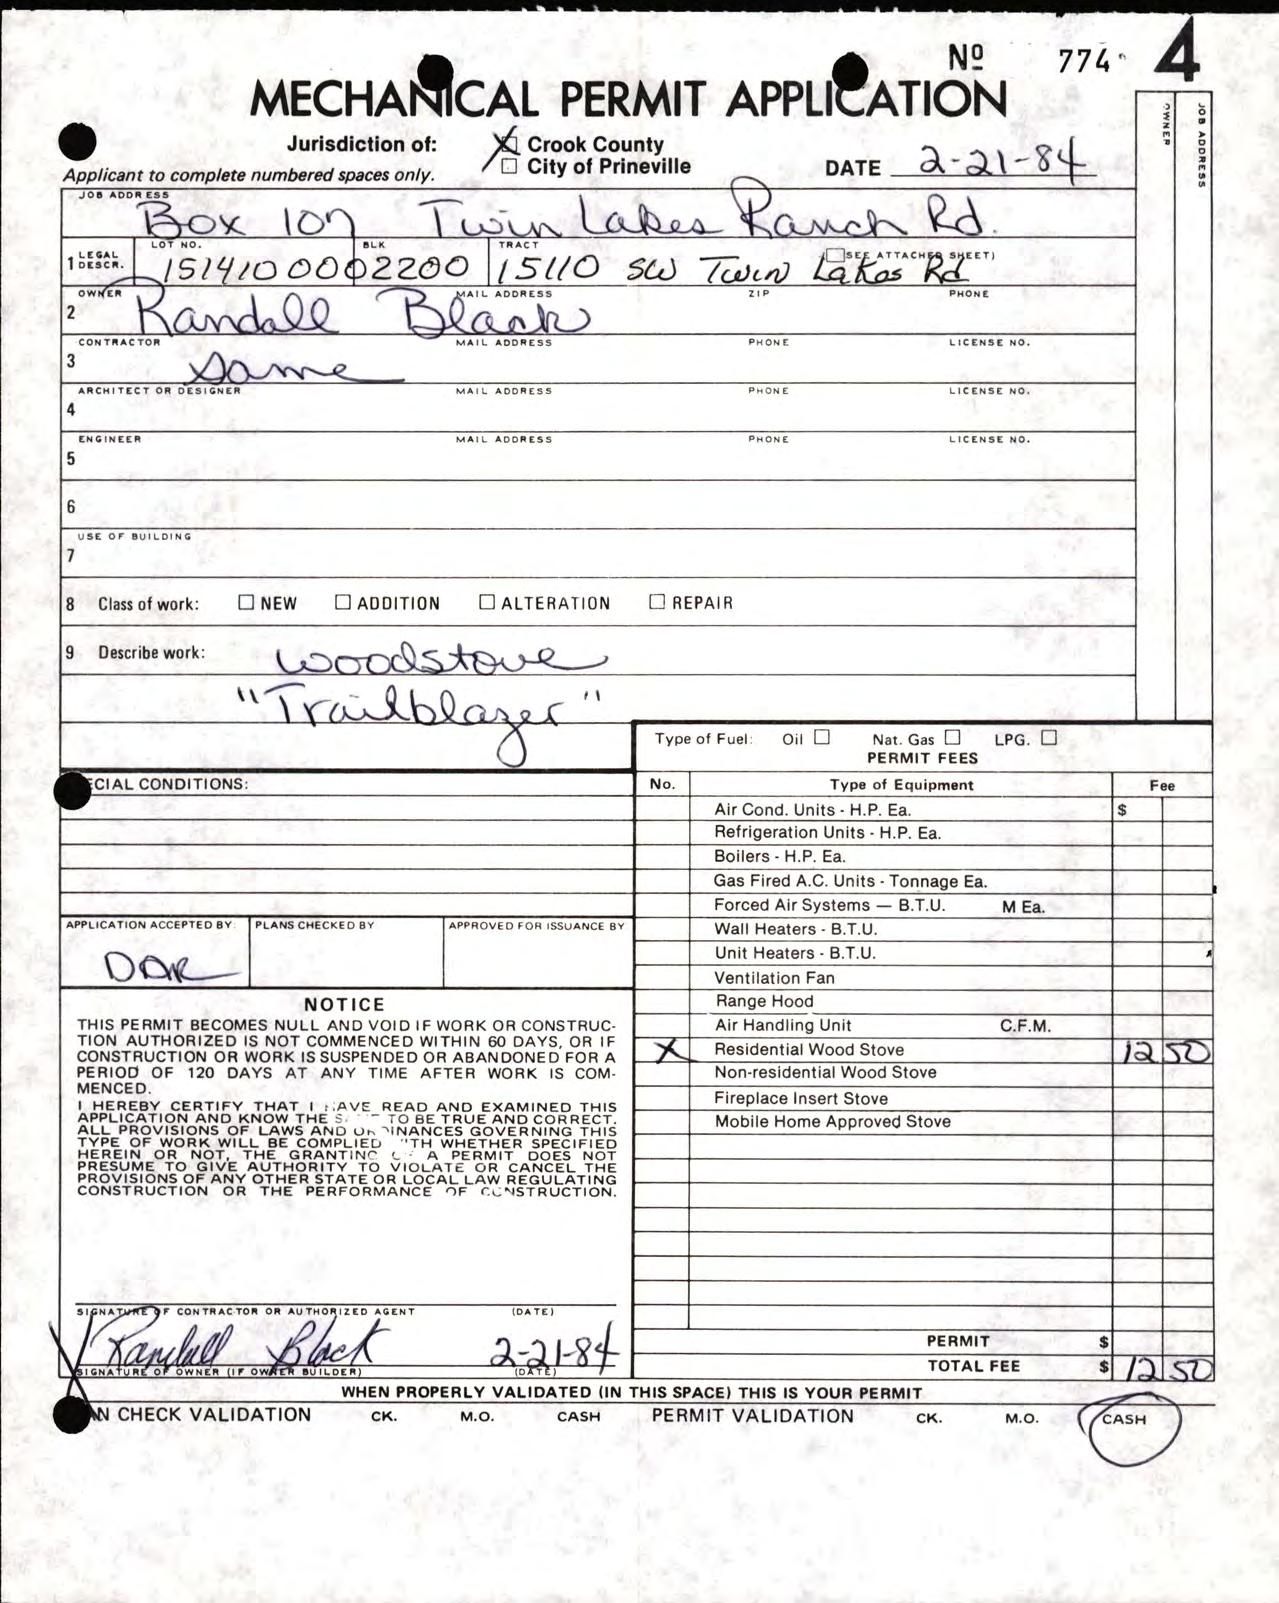 Nº 774 4
MECHANICAL PERMIT APPLICATION
Jurisdiction of: Crook County
City of Prineville
DATE 2-21-84
Applicant to complete numbered spaces only.
OWNER
JOB ADDRESS
JOB ADDRESS
Box 107 Twin Lakes Ranch Rd.
LOT NO. BLK TRACT (SEE ATTACHED SHEET)
1 LEGAL DESCR. 1514100002200 15110 SW Twin Lakes Rd
OWNER MAIL ADDRESS ZIP PHONE
2 Randall Black
CONTRACTOR MAIL ADDRESS PHONE LICENSE NO.
3 Same
ARCHITECT OR DESIGNER MAIL ADDRESS PHONE LICENSE NO.
4
ENGINEER MAIL ADDRESS PHONE LICENSE NO.
5
6
USE OF BUILDING
7
8 Class of work: NEW ADDITION ALTERATION REPAIR
9 Describe work: Woodstove
"Trailblazer"
Type of Fuel: Oil Nat. Gas LPG.
PERMIT FEES
CIAL CONDITIONS:
No. Type of Equipment Fee
Air Cond. Units - H.P. Ea. $
Refrigeration Units - H.P. Ea.
Boilers - H.P. Ea.
Gas Fired A.C. Units - Tonnage Ea.
Forced Air Systems — B.T.U. M Ea.
Wall Heaters - B.T.U.
Unit Heaters - B.T.U.
Ventilation Fan
Range Hood
Air Handling Unit C.F.M.
X Residential Wood Stove 12 50
Non-residential Wood Stove
Fireplace Insert Stove
Mobile Home Approved Stove
PERMIT $
TOTAL FEE $ 12 50
APPLICATION ACCEPTED BY: PLANS CHECKED BY APPROVED FOR ISSUANCE BY
DAR
NOTICE
THIS PERMIT BECOMES NULL AND VOID IF WORK OR CONSTRUC-
TION AUTHORIZED IS NOT COMMENCED WITHIN 60 DAYS, OR IF
CONSTRUCTION OR WORK IS SUSPENDED OR ABANDONED FOR A
PERIOD OF 120 DAYS AT ANY TIME AFTER WORK IS COM-
MENCED.
I HEREBY CERTIFY THAT I HAVE READ AND EXAMINED THIS
APPLICATION AND KNOW THE TO BE TRUE AND CORRECT.
ALL PROVISIONS OF LAWS AND ORDINANCES GOVERNING THIS
TYPE OF WORK WILL BE COMPLIED WITH WHETHER SPECIFIED
HEREIN OR NOT, THE GRANTING OF A PERMIT DOES NOT
PRESUME TO GIVE AUTHORITY TO VIOLATE OR CANCEL THE
PROVISIONS OF ANY OTHER STATE OR LOCAL LAW REGULATING
CONSTRUCTION OR THE PERFORMANCE OF CONSTRUCTION.
SIGNATURE OF CONTRACTOR OR AUTHORIZED AGENT (DATE)
X Randall Black 2-21-84
SIGNATURE OF OWNER (IF OWNER BUILDER) (DATE)
WHEN PROPERLY VALIDATED (IN THIS SPACE) THIS IS YOUR PERMIT
AN CHECK VALIDATION CK. M.O. CASH PERMIT VALIDATION CK. M.O. CASH